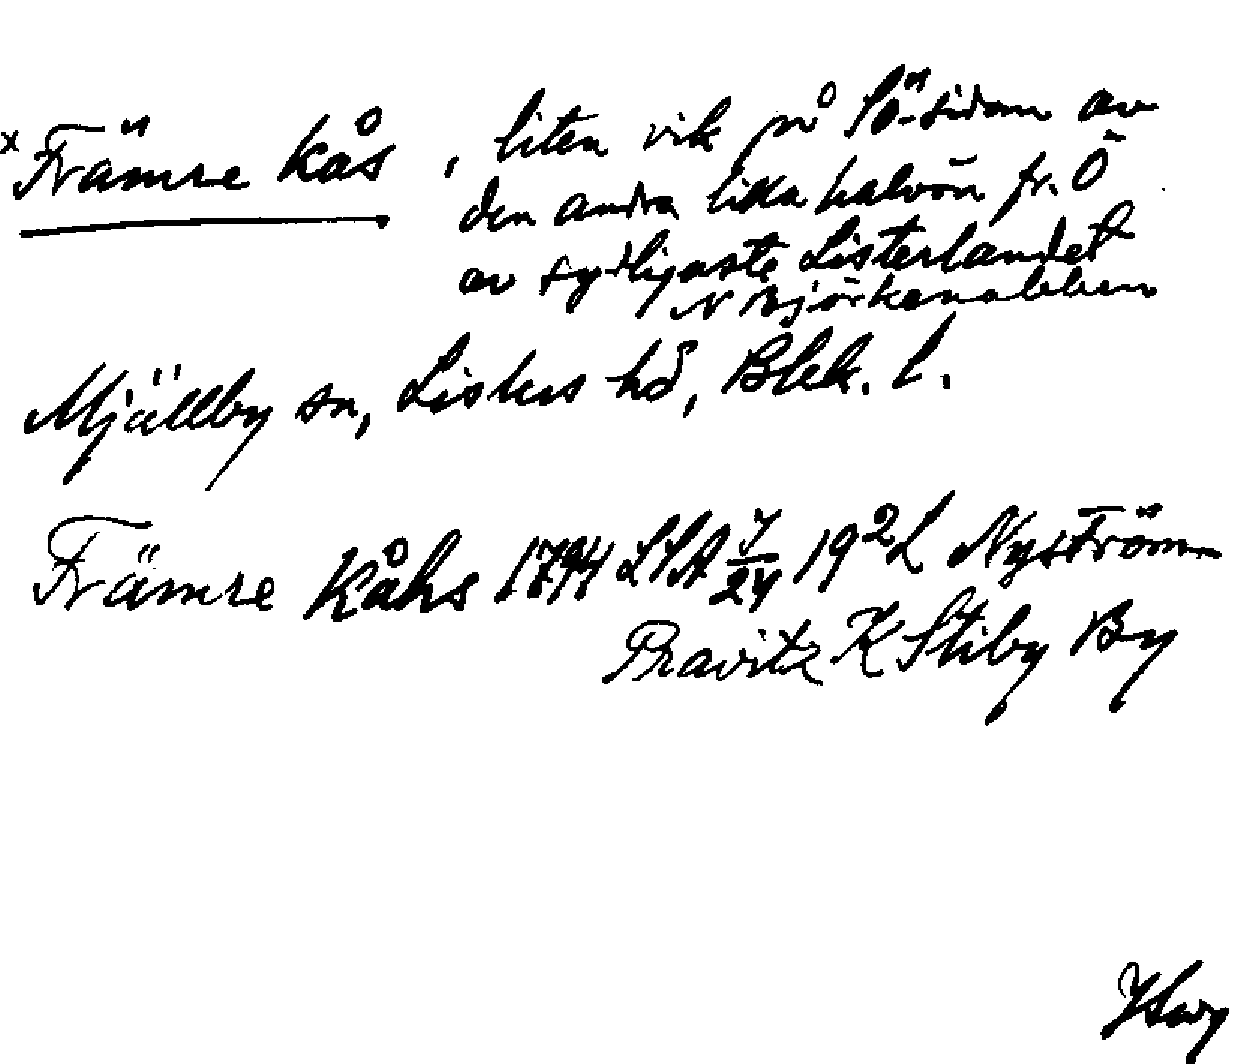 x Främre kås, liten vik på SÖ-sidan av
den andra lilla halvön fr. Ö
av sydligaste Listerlandet
N Björkenabben
Mjällby sn, Listers hd, Blek. l.
Främre Kåhs 1794 LSA 19² L Nyström
Pravitz K Stiby By